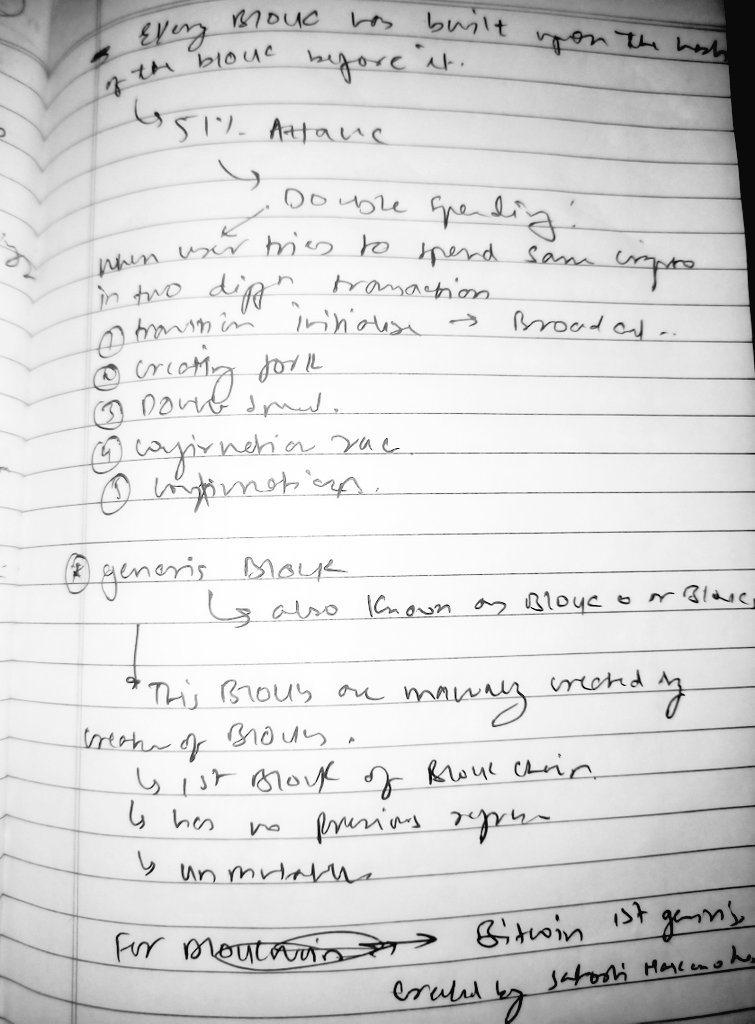 Every Block has built upon the hash
of the block before it.
↳ 51% Attack
Double Spending:
when user tries to spend same crypto
in two diffn transaction
① initialise → Broad
② creating fork
③ Double spend.
④ confirmation race
⑤ confirmations.
⊛ genesis Block
↳ also known as Block 0 or Block
This Blocks are manually created by
creator of Blocks.
↳ 1st Block of Block chain
↳ has no previous
↳ unmutable
For Blockchain → Bitcoin 1st genesis
created by Satoshi